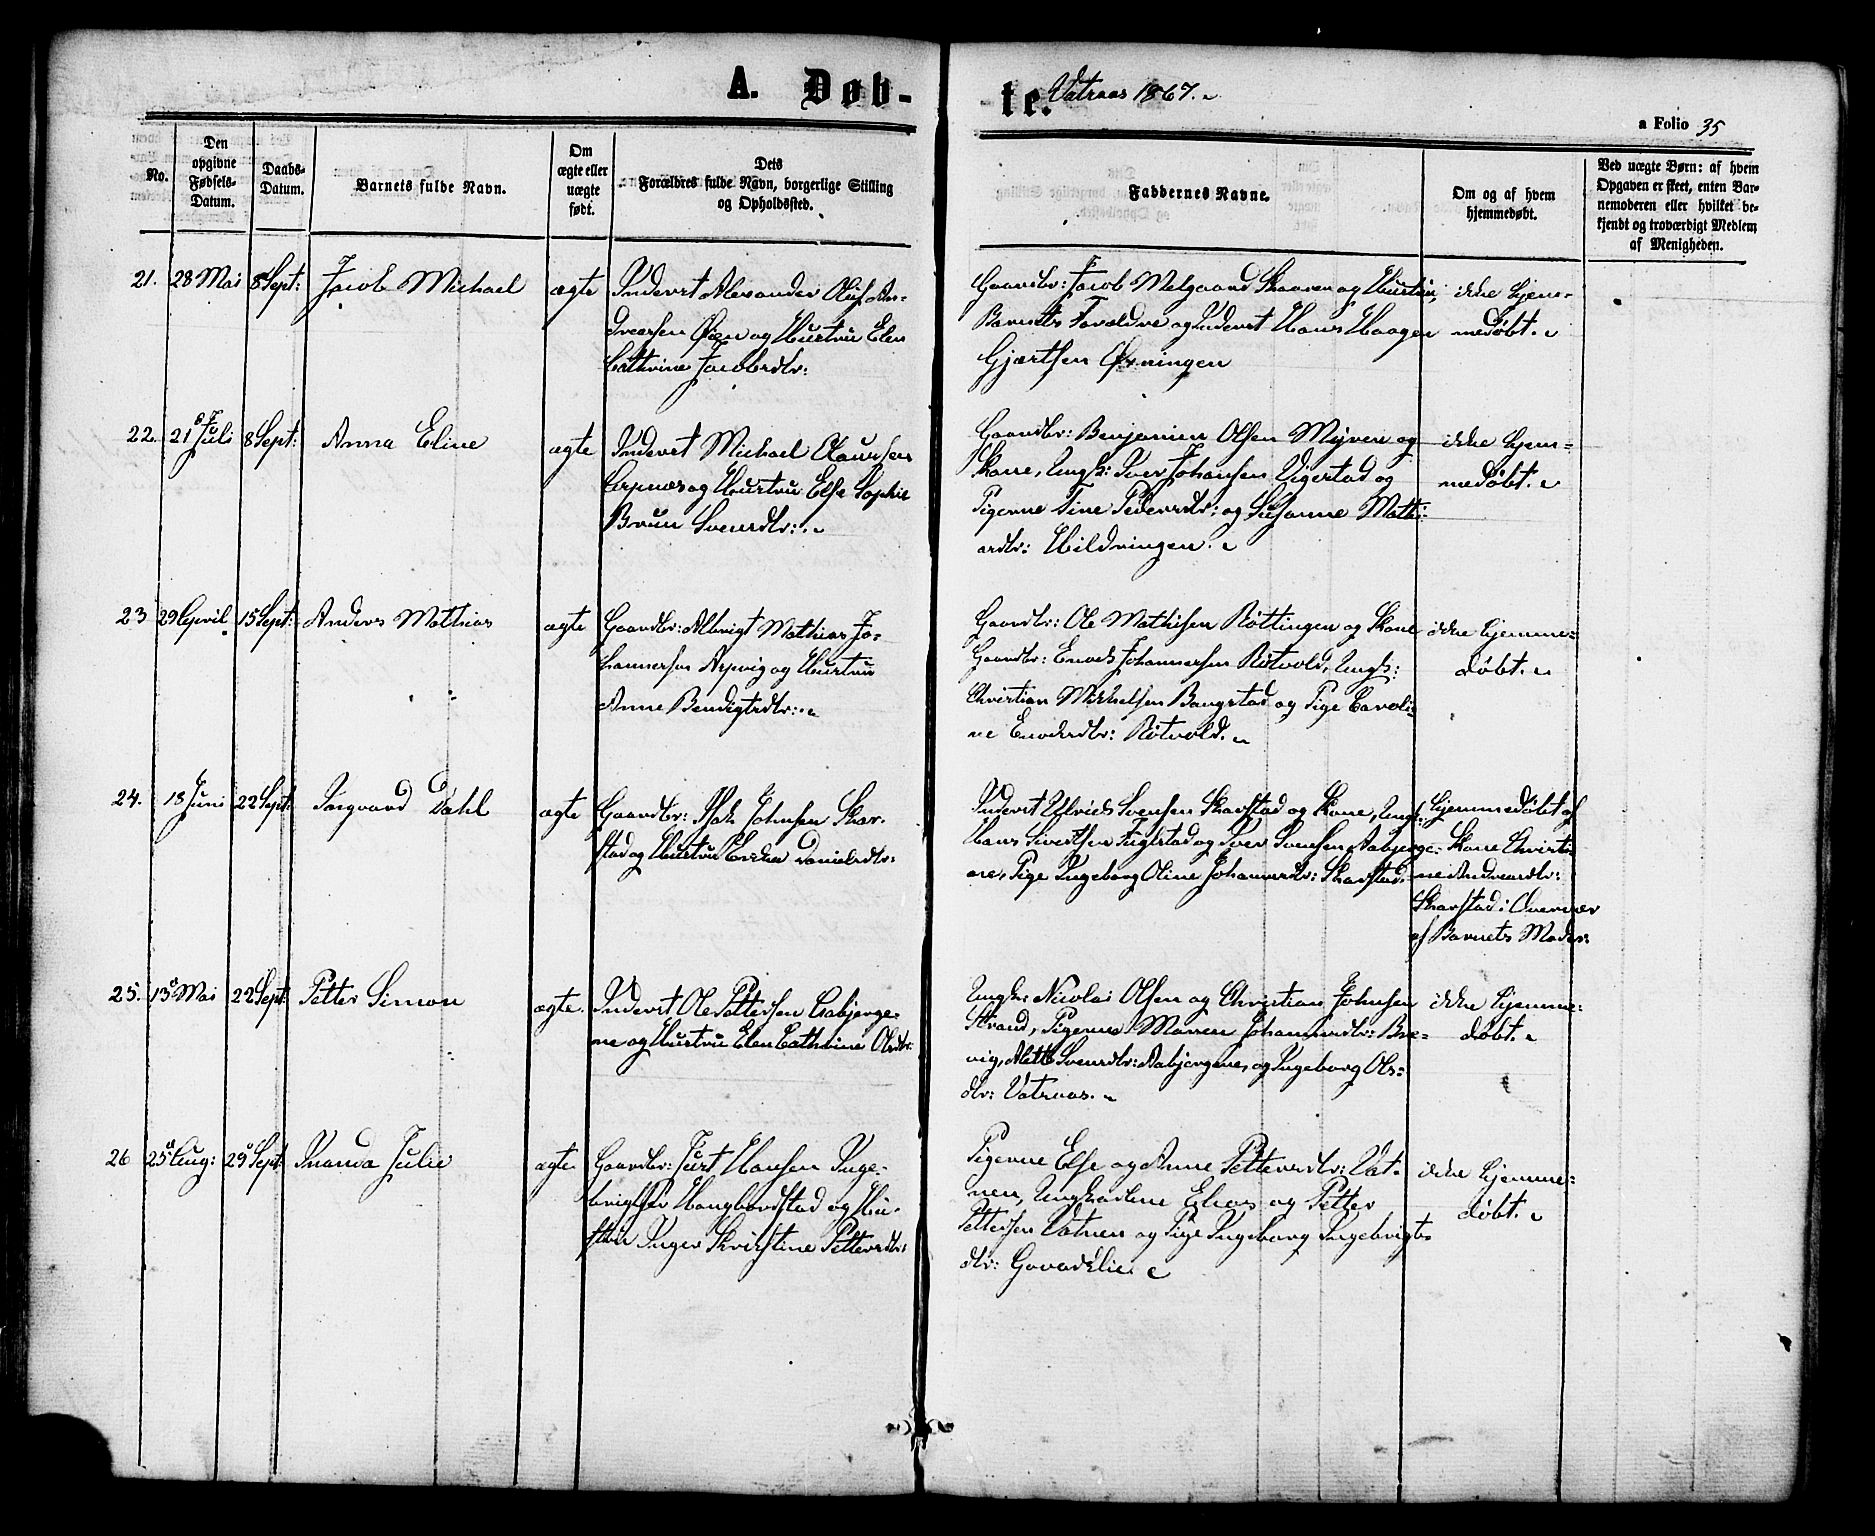 A. Døb-
te. Vatraas 1867.
a Folio 35
No.
Den
opgivne
Fødsels-
Datum.
Daabs-
Datum.
Barnets fulde Navn.
Om
ægte eller
uægte
født.
Dets
Forældres fulde Navn, borgerlige Stilling
og Opholdssted.
Faddernes Navne.
Om og af hvem
hjemmedøbt.
Ved uægte Børn: af hvem
Opgaven er skeet, enten Bar-
nemoderen eller hvilket be-
kjendt og troværdigt Medlem
af Menigheden.
21. 28 Mai 8 Sept: Jacob Michael ægte
Inderst Alexander Oluf An-
dreasen Øien og Hustru Elen
Cathrine Jacobsdtr:
Gaardbr: Jacob Melgaard Skaaren og Hustru,
Barnets Forældre og Inderst Hans Haagen
Gjærtsen Øxningen
ikke hjem-
medøbt.
22. 21 Juli 8 Sept: Anna Eline ægte
Inderst Michael Claussen
og Hustru Else Sophie
Brun Svensdtr:
Gaardbr: Benjamin Olsen Myren og
Kone, Ungk: Iver Johansen Vigestad og
Pigerne Sine Pedersdtr: og Susanne Math:
Hildringen.
ikke hjem-
medøbt.
23 29 April 15 Sept: Anders Mathias ægte
Gaardbr: Albrigt Mathias Jo-
hannesen Arpvig og Hustru
Anne Bendigtsdtr:
Gaardbr: Ole Mathisen Røttingen og Kone
Gaardbr: Enock Johannesen Røtvold, Ungk:
Christian Michelsen Bangstad og Pige Caroli-
ne Enocksdtr: Røtvold.
ikke hjemme-
døbt.
24. 18 Juni 22 Sept: Ingvard Dahl ægte
Gaardbr: Isak Johnsen Skar-
stad og Hustru Danielsdtr:
Inderst Svensen Skarstad og Kone, Ungk:
Hans Sivertsen og Iver Svensen Aabjørge:
ne, Pige Ingeborg Oline Johannesdtr: Skarstad.
hjemmedøbt af
Kone Christi-
ne Andreasdtr:
Skarstad i Overvær
af Barnets Moder.
25. 13 Mai 22 Sept: Petter Simon ægte.
Inderst Ole Pettersen Aabjørge-
ne og Hustru Elen Cathrine Olsdtr:
Ungk: Nicolai Olsen og Christian Johnsen
Strand, Pigerne Maren Johannesdtr: Bre-
vig, Mette Svensdtr: Aabjørgene, og Ingeborg Ols-
dtr: Vatraas.
ikke hjemme-
døbt.
26 25 Aug: 29 Sept: Inanda Julie ægte
Gaardbr: Jürt Hansen Inge-
brigtsen Hongbordstad og Hu-
stru Inger Kristine Pettersdtr:
Pigerne Else og Anne Pettersdtr: Vat-
nen, Ungkarlene Elias og Petter
Pettersen Vatnen og Pige Ingeborg Ingebrigts-
dtr: Gaardslien
ikke hjemme-
døbt.